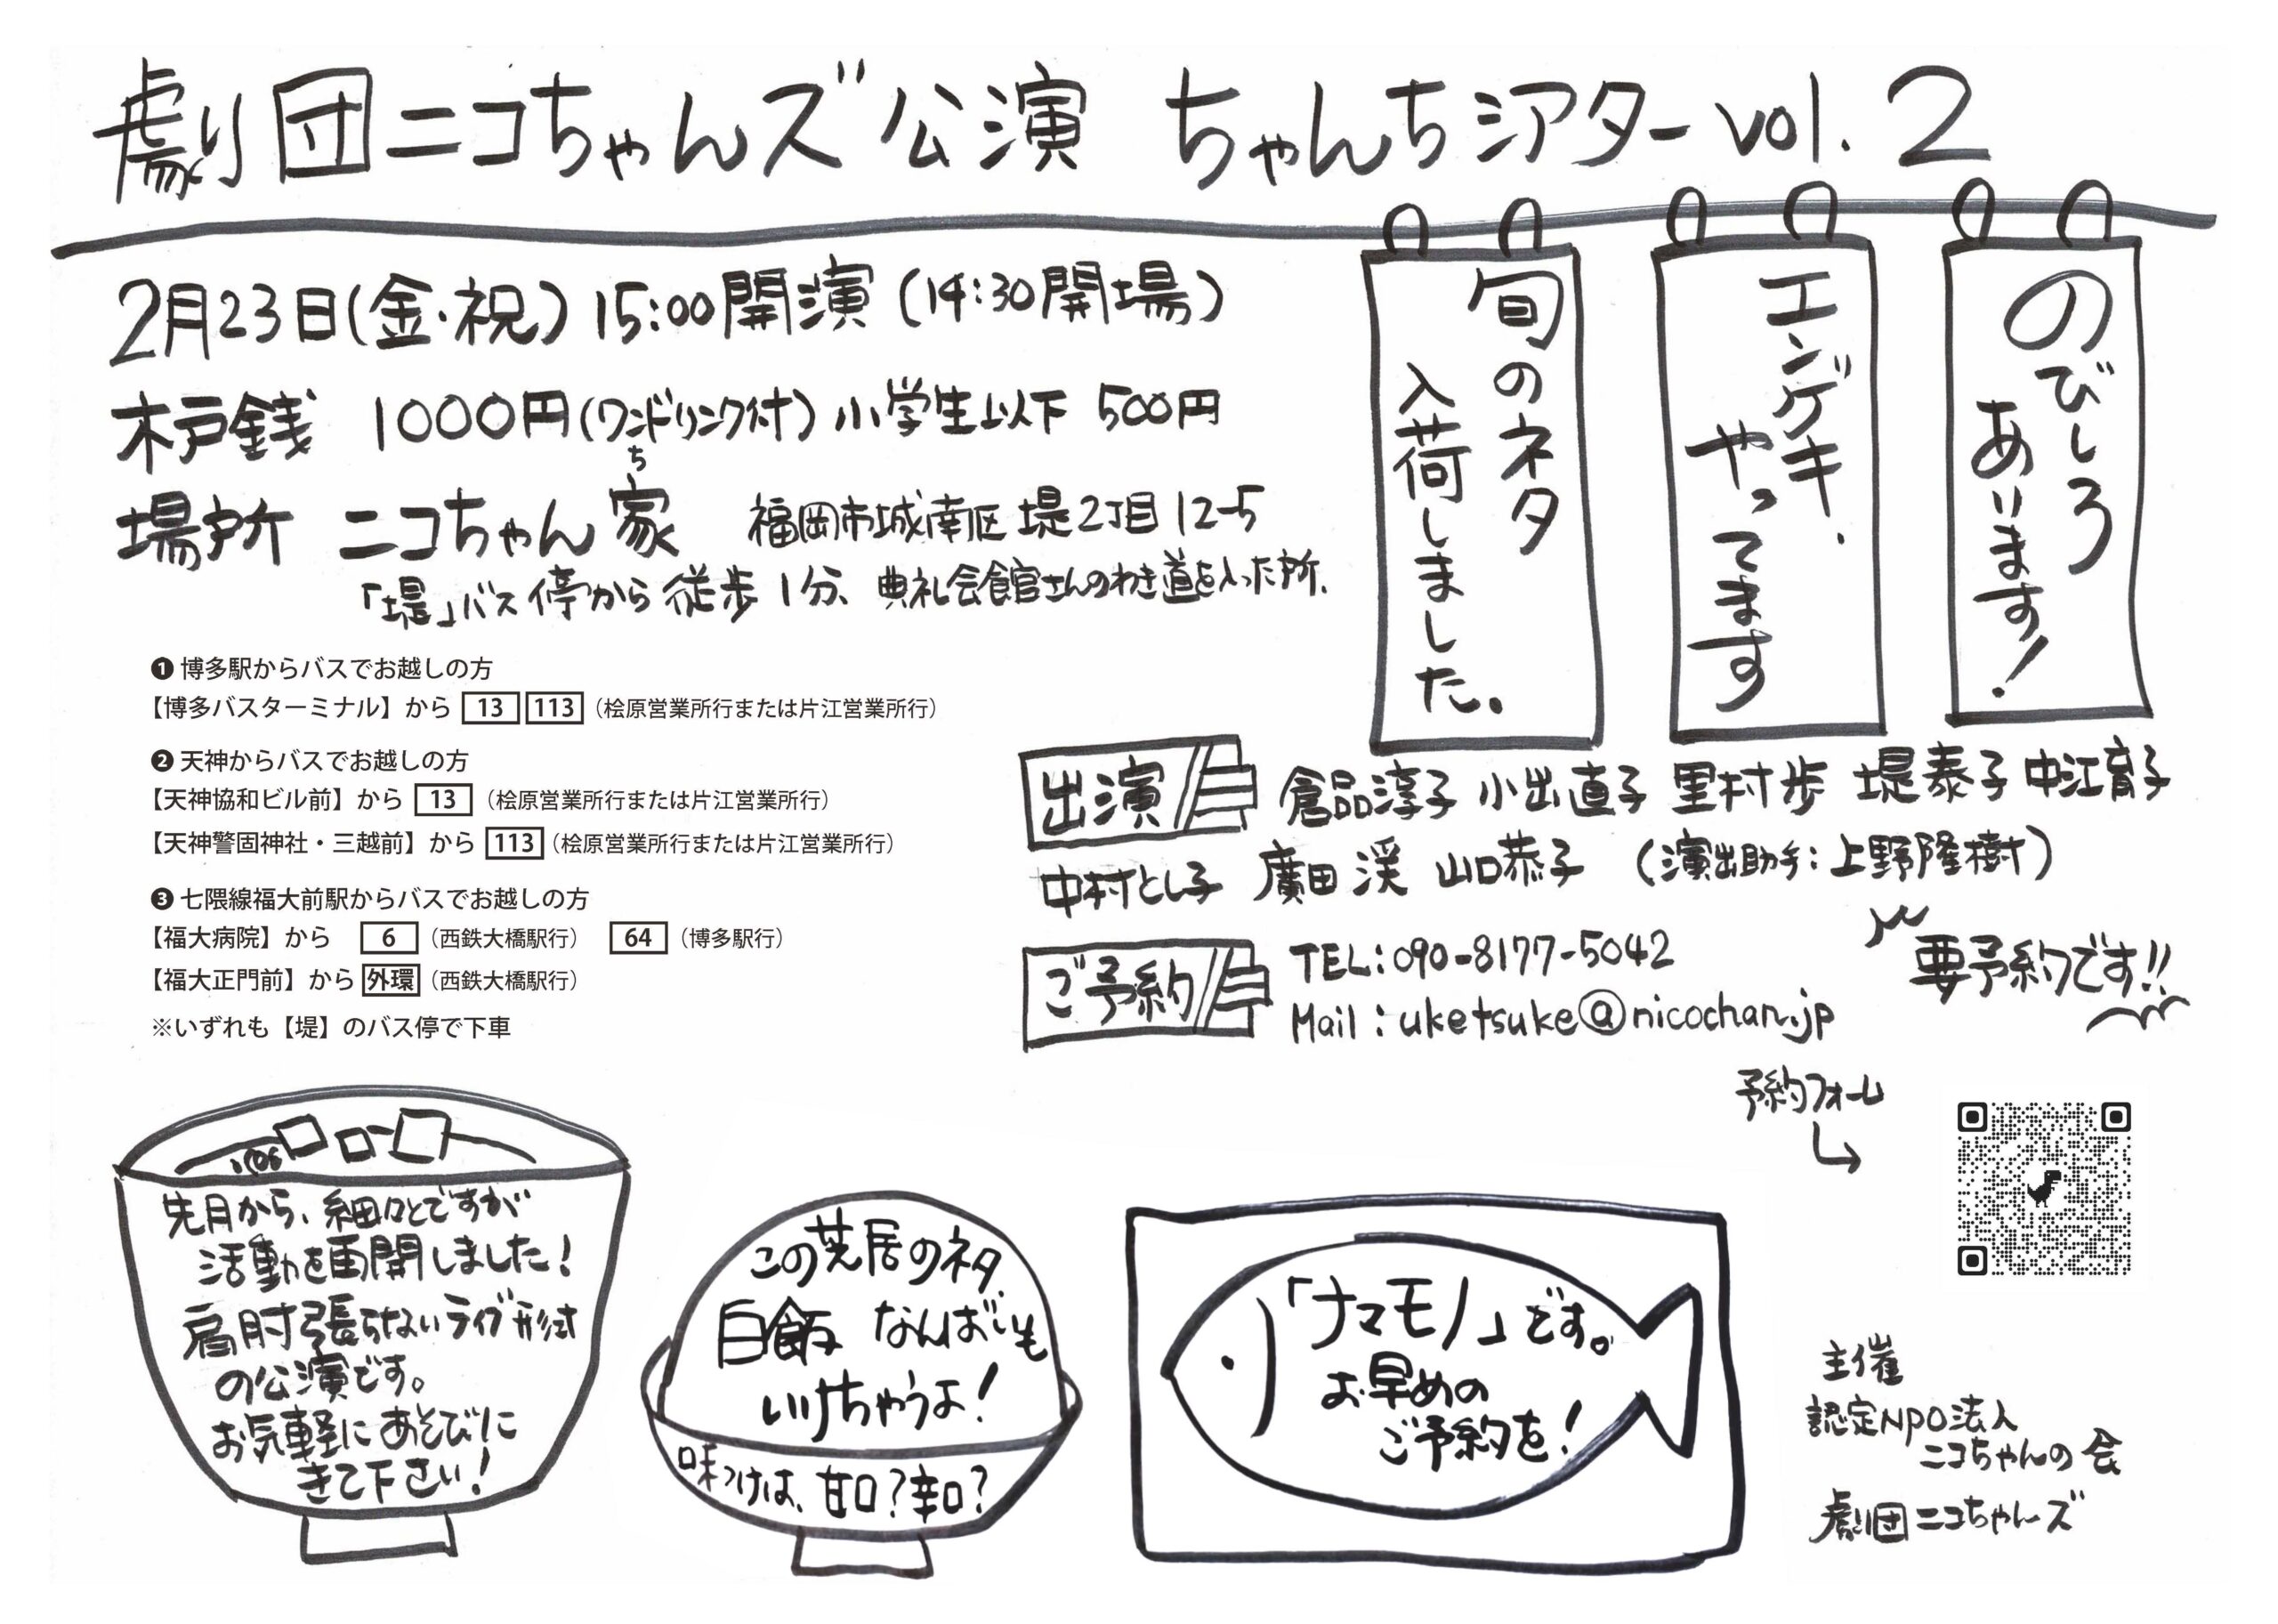 劇団ニコちゃんズ公演 ちゃんちシアターvol.2
2月23日(金・祝) 15:00開演 (14:30開場)
木戸銭 1000円(ワンドリンク付) 小学生以下 500円
場所 ニコちゃん家 福岡市城南区堤2丁目12-5
ち
「堤」バス停から徒歩1分、典礼会館さんのわき道を入った所.
のびしろ
あります!
エンゲキ、
やってます
旬のネタ
入荷しました。
❶ 博多駅からバスでお越しの方
【博多バスターミナル】から 13 113（桧原営業所行または片江営業所行）
❷ 天神からバスでお越しの方
【天神協和ビル前】から 13（桧原営業所行または片江営業所行）
【天神警固神社・三越前】から 113（桧原営業所行または片江営業所行）
❸ 七隈線福大前駅からバスでお越しの方
【福大病院】から 6（西鉄大橋駅行） 64（博多駅行）
【福大正門前】から 外環（西鉄大橋駅行）
※いずれも【堤】のバス停で下車
出演 倉品淳子 小出直子 里村歩 堤泰子 中江育子
中村とし子 廣田渓 山口恭子 (演出助手：上野隆樹)
ご予約 TEL:090-8177-5042
Mail：uketsuke@nicochan.jp
要予約です!!
予約フォーム
先月から、細々とですが
活動を再開しました!
肩肘張らないライブ形式
の公演です。
お気軽にあそびに
きて下さい!
この芝居のネタ、
白飯 なんばいも
いけちゃうよ!
味つけは、甘口?辛口?
「ナマモノ」です。
お早めの
ご予約を!
主催
認定NPO法人
ニコちゃんの会
劇団ニコちゃんズ